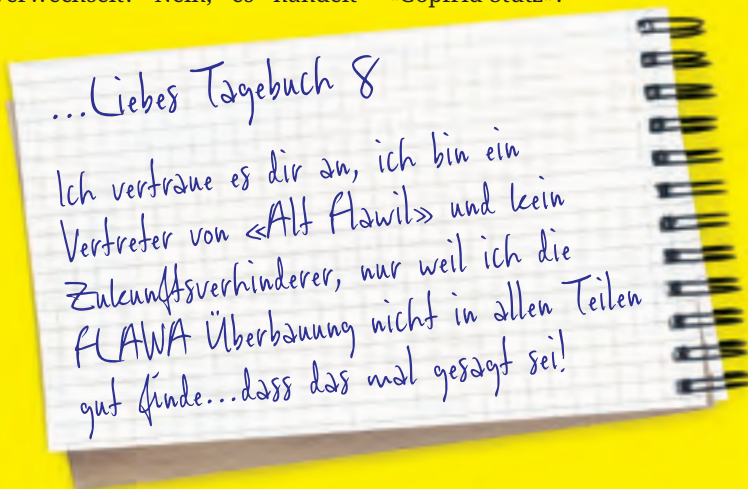 Nein, es handelt
...Liebes Tagebuch 8
Ich vertraue es dir an, ich bin ein
Vertreter von «Alt Flawil» und kein
Zukunftsverhinderer, nur weil ich die
FLAWA Überbauung nicht in allen Teilen
gut finde...dass das mal gesagt sei!